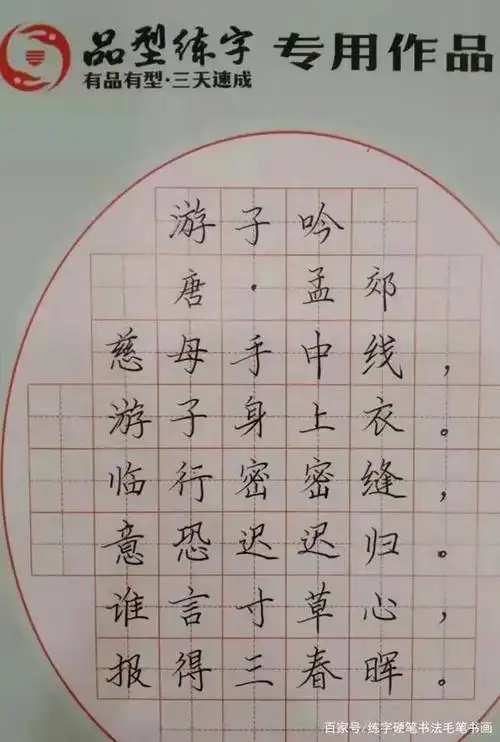 品型练字 专用作品
有品有型·三天速成
游子吟
唐·孟郊
慈母手中线，
游子身上衣。
临行密密缝，
意恐迟迟归。
谁言寸草心，
报得三春晖。
百家号/练字硬笔书法毛笔书画